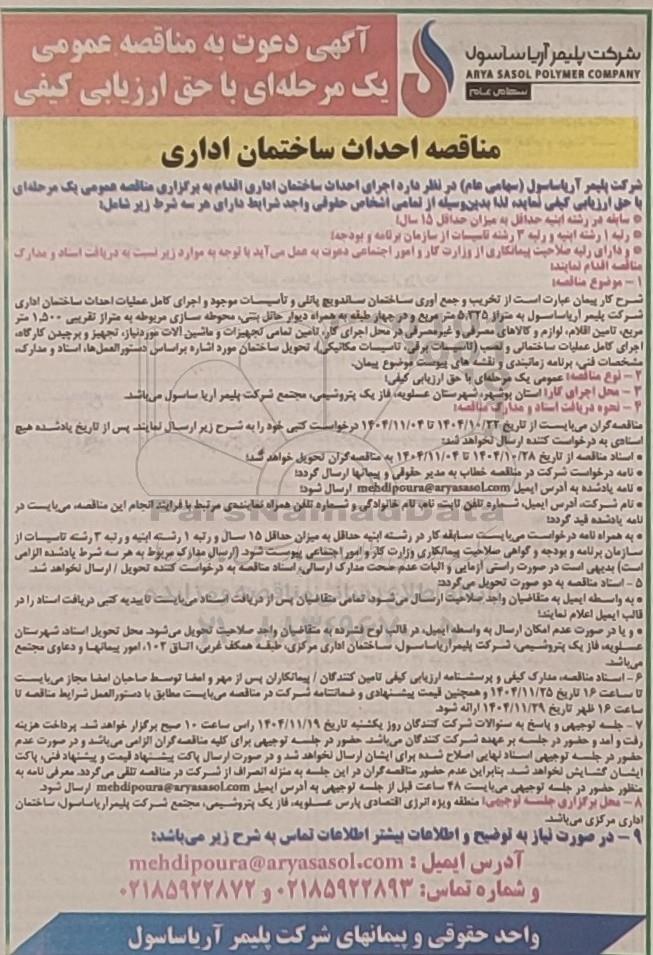 آگهی دعوت به مناقصه عمومی
یک مرحله‌ای با حق ارزیابی کیفی
شرکت پلیمر آریاساسول
ARYA SASOL POLYMER COMPANY
سهامی عام
مناقصه احداث ساختمان اداری
شرکت پلیمر آریاساسول (سهامی عام) در نظر دارد اجرای احداث ساختمان اداری اقدام به برگزاری مناقصه عمومی یک مرحله‌ای
با حق ارزیابی کیفی نماید، لذا بدین‌وسیله از تمامی اشخاص حقوقی واجد شرایط دارای هر سه شرط زیر شامل:
* سابقه در رشته ابنیه حداقل به میزان حداقل ۱۵ سال؛
* رتبه ۱ رشته ابنیه و رتبه ۳ رشته تاسیسات از سازمان برنامه و بودجه؛
* و دارای رتبه صلاحیت پیمانکاری از وزارت کار و امور اجتماعی دعوت به عمل می‌آید با توجه به موارد زیر نسبت به دریافت اسناد و مدارک
مناقصه اقدام نمایند:
۱ – موضوع مناقصه:
شرح کار پیمان عبارت است از تخریب و جمع آوری ساختمان ساندویچ پانلی و تأسیسات موجود و اجرای کامل عملیات احداث ساختمان اداری
شرکت پلیمر آریاساسول به متراژ ۵،۳۲۵ متر مربع و در چهار طبقه به همراه دیوار حائل بتنی، محوطه سازی مربوطه به متراژ تقریبی ۱،۵۰۰ متر
مربع، تامین اقلام، لوازم و کالاهای مصرفی و غیرمصرفی در محل اجرای کار، تامین تمامی تجهیزات و ماشین آلات موردنیاز، تجهیز و برچیدن کارگاه،
اجرای کامل عملیات ساختمانی و نصب (تاسیسات برقی، تاسیسات مکانیکی)، تحویل ساختمان مورد اشاره براساس دستورالعمل‌ها، اسناد و مدارک،
مشخصات فنی، برنامه زمانبندی و نقشه های پیوست موضوع پیمان.
۲ – نوع مناقصه: عمومی یک مرحله‌ای با حق ارزیابی کیفی؛
۳ – محل اجرای کار: استان بوشهر، شهرستان عسلویه، فاز یک پتروشیمی، مجتمع شرکت پلیمر آریا ساسول می‌باشد.
۴ – نحوه دریافت اسناد و مدارک مناقصه:
مناقصه‌گران می‌بایست از تاریخ ۱۴۰۴/۱۰/۲۲ تا ۱۴۰۴/۱۱/۰۴ درخواست کتبی خود را به شرح زیر ارسال نمایند. پس از تاریخ یادشده هیچ
اسنادی به درخواست کننده ارسال نخواهد شد:
* اسناد مناقصه از تاریخ ۱۴۰۴/۱۰/۲۸ تا ۱۴۰۴/۱۱/۰۴ به مناقصه‌گران تحویل خواهد شد؛
* نامه درخواست شرکت در مناقصه خطاب به مدیر حقوقی و پیمانها ارسال گردد؛
* نامه یادشده به آدرس ایمیل mehdipoura@aryasasol.com ارسال شود؛
* نام شرکت، آدرس ایمیل، شماره تلفن ثابت، نام، نام خانوادگی و شماره تلفن همراه نماینده‌ی مرتبط با فرایند انجام این مناقصه، می‌بایست در
نامه یادشده قید گردد؛
* به همراه نامه درخواست می‌بایست سابقه کار در رشته ابنیه حداقل به میزان حداقل ۱۵ سال و رتبه ۱ رشته ابنیه و رتبه ۳ رشته تاسیسات از
سازمان برنامه و بودجه و گواهی صلاحیت پیمانکاری وزارت کار و امور اجتماعی پیوست شود. (ارسال مدارک مربوط به هر سه شرط یادشده الزامی
است) بدیهی است در صورت راستی آزمایی و اثبات عدم صحت مدارک ارسالی، اسناد مناقصه به درخواست کننده تحویل / ارسال نخواهد شد.
۵ – اسناد مناقصه به دو صورت تحویل می‌گردد:
* به واسطه ایمیل به متقاضیان واجد صلاحیت ارسال می‌شود، تمامی متقاضیان پس از دریافت اسناد می‌بایست تاییدیه کتبی دریافت اسناد را در
قالب ایمیل اعلام نمایند؛
* و یا در صورت عدم امکان ارسال به واسطه ایمیل، در قالب لوح فشرده به متقاضیان واجد صلاحیت تحویل می‌شود. محل تحویل اسناد، شهرستان
عسلویه، فاز یک پتروشیمی، شرکت پلیمرآریاساسول، ساختمان اداری مرکزی، طبقه همکف غربی، اتاق ۱۰۲، امور پیمانها و دعاوی مجتمع
می‌باشد.
۶ – اسناد مناقصه، مدارک کیفی و پرسشنامه ارزیابی کیفی تامین کنندگان / پیمانکاران پس از مهر و امضا توسط صاحبان امضا مجاز می‌بایست
تا ساعت ۱۶ تاریخ ۱۴۰۴/۱۱/۲۵ و همچنین قیمت پیشنهادی و ضمانتنامه شرکت در مناقصه می‌بایست مطابق با دستورالعمل شرایط مناقصه تا
ساعت ۱۶ ظهر تاریخ ۱۴۰۴/۱۱/۲۹ ارائه شود.
۷ – جلسه توجیهی و پاسخ به سئوالات شرکت کنندگان روز یکشنبه تاریخ ۱۴۰۴/۱۱/۱۹ راس ساعت ۱۰ صبح برگزار خواهد شد. پرداخت هزینه
رفت و آمد و حضور در جلسه بر عهده شرکت کنندگان می‌باشد. حضور در جلسه توجیهی برای کلیه مناقصه‌گران الزامی می‌باشد و در صورت عدم
حضور در جلسه توجیهی اسناد نهایی اصلاح شده برای ایشان ارسال نخواهد شد و در صورت ارسال پاکت پیشنهاد قیمت و پیشنهاد فنی، پاکت
ایشان گشایش نخواهد شد. بنابراین عدم حضور مناقصه‌گران در این جلسه به منزله انصراف از شرکت در مناقصه تلقی می‌گردد. معرفی نامه به
منظور حضور در جلسه توجیهی می‌بایست ۴۸ ساعت قبل از جلسه توجیهی به آدرس ایمیل mehdipoura@aryasasol.com ارسال شود.
۸ – محل برگزاری جلسه توجیهی: منطقه ویژه انرژی اقتصادی پارس عسلویه، فاز یک پتروشیمی، مجتمع شرکت پلیمرآریاساسول، ساختمان
اداری مرکزی می‌باشد.
۹ – در صورت نیاز به توضیح و اطلاعات بیشتر اطلاعات تماس به شرح زیر می‌باشد:
آدرس ایمیل : mehdipoura@aryasasol.com
و شماره تماس: ۰۲۱۸۵۹۲۲۸۹۳ و ۰۲۱۸۵۹۲۲۸۷۲
واحد حقوقی و پیمانهای شرکت پلیمر آریاساسول
ParsNamadData